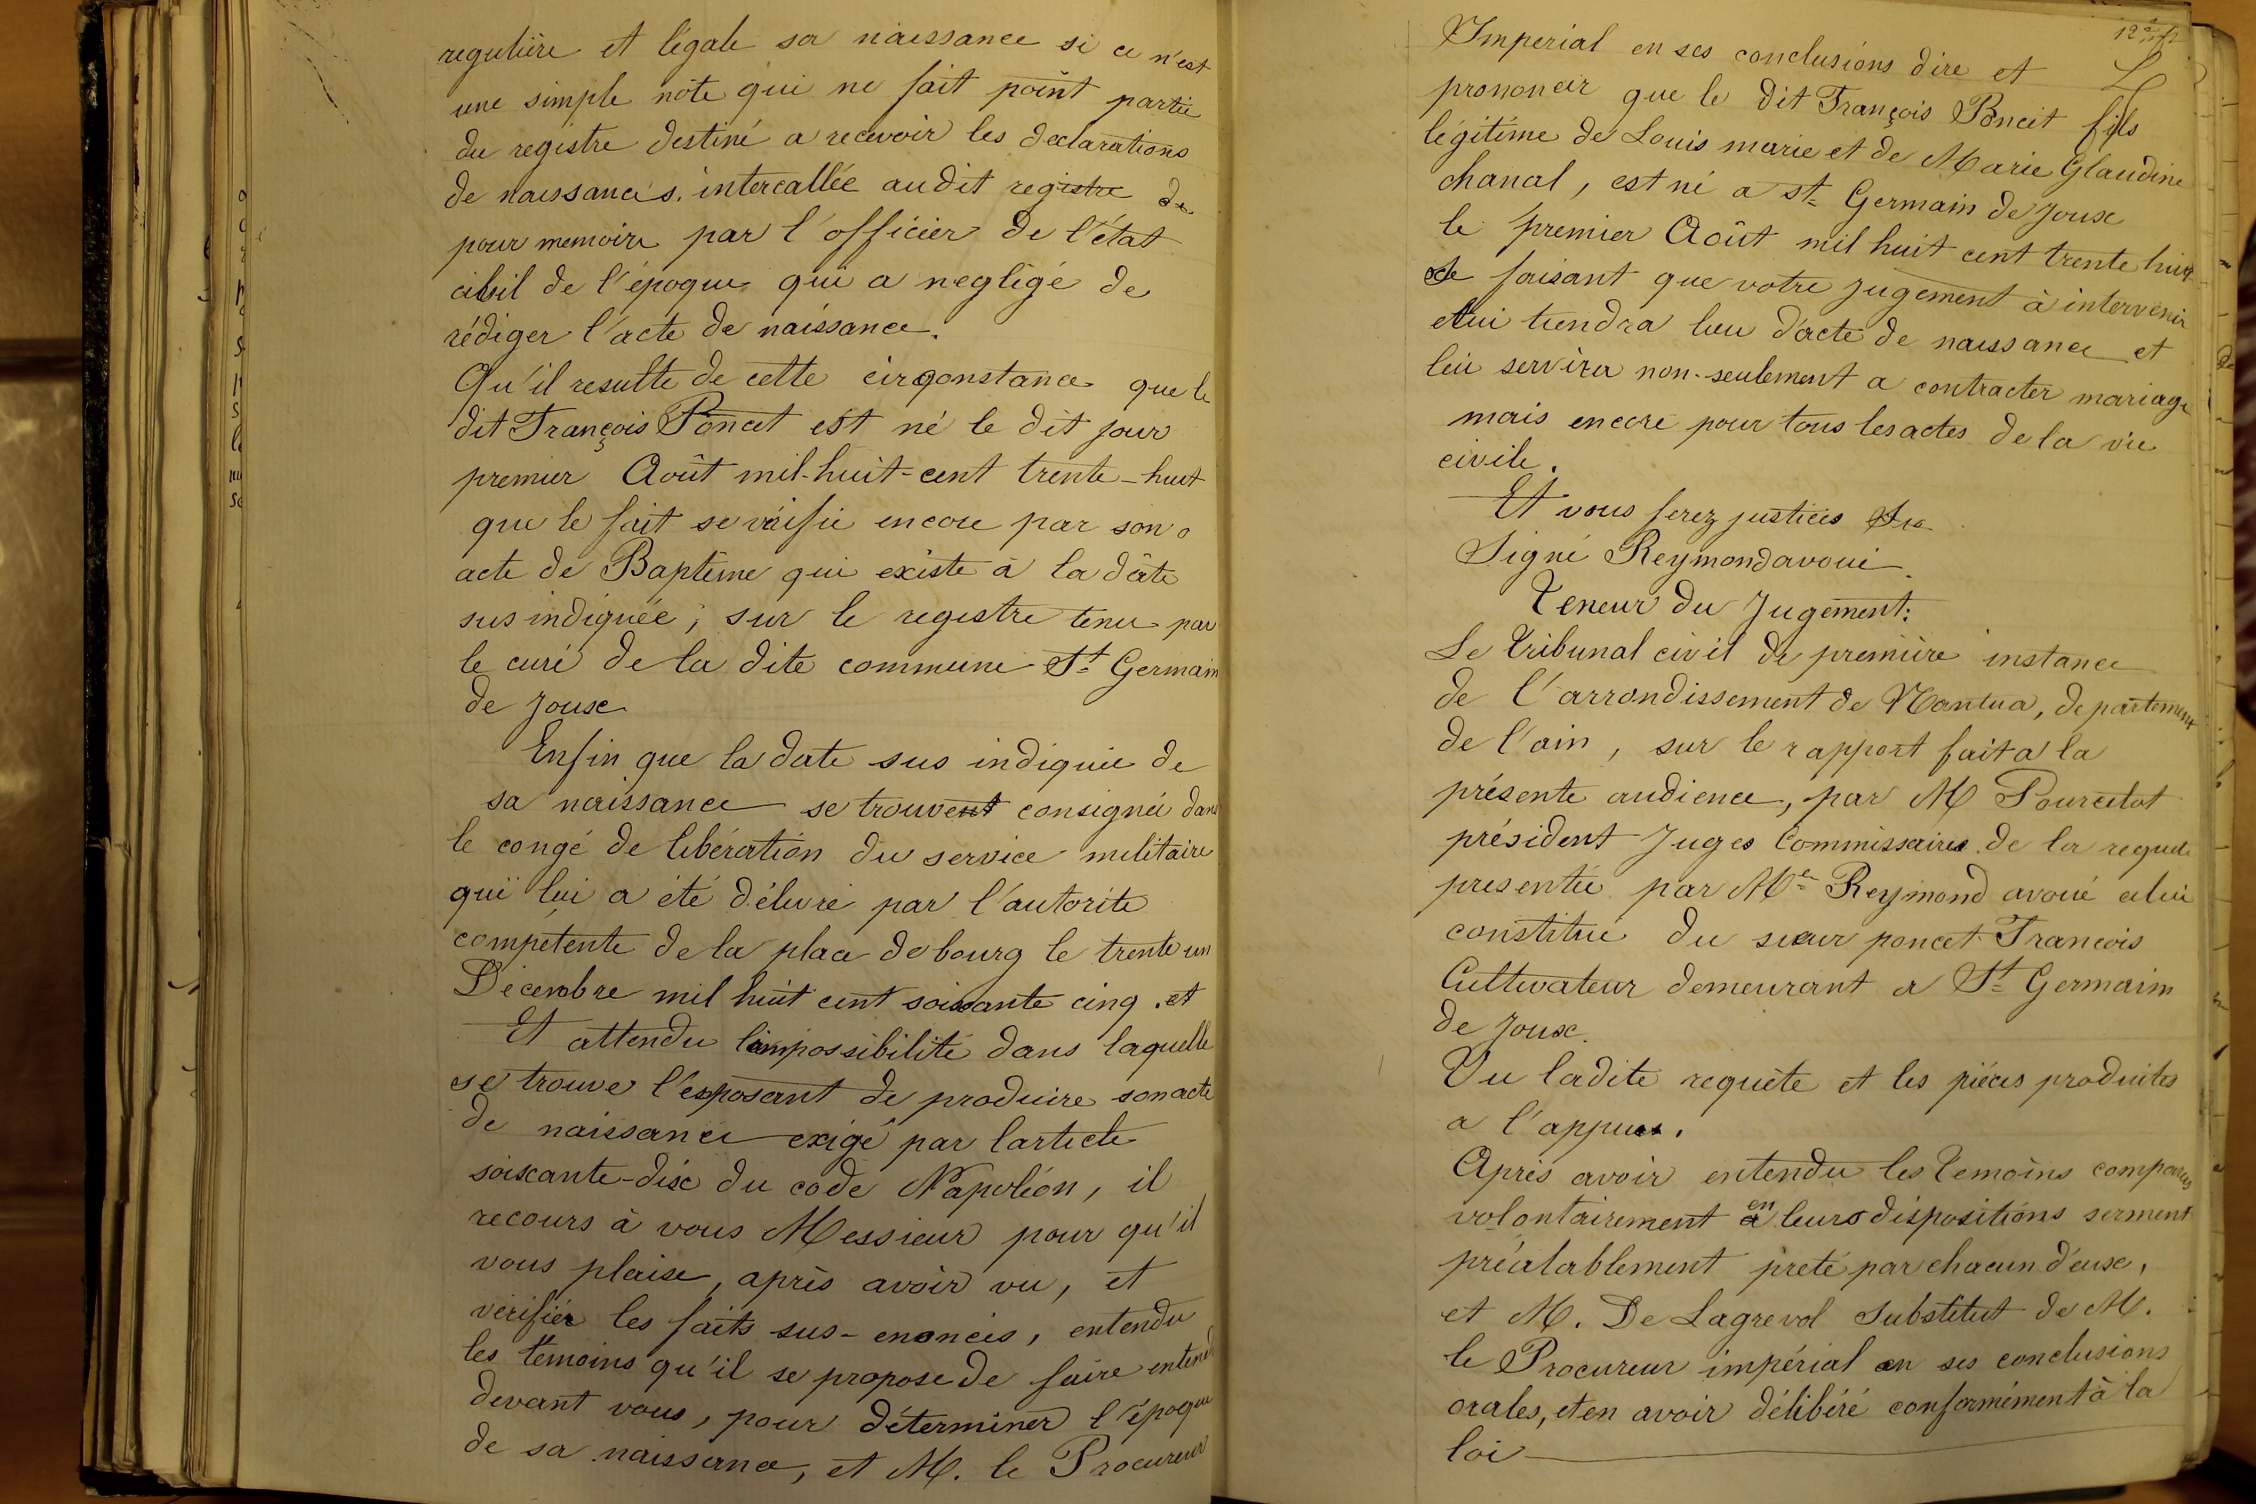 regulière et légale sa naissance si ce n'est
une simple note qui ne fait point partie
du registre destiné a recevoir les declarations
de naissances. intercallée au dit registre de
pour memoire par l'officier de l'état
civil de l'époque qui a negligé de
rédiger l'acte de naissance.
Qu'il resulte de cette circonstance que le
dit François Poncet est né le dit jour
premier Août mil-huit-cent trente-huit
que le fait se vérifie encore par son
acte de Baptème qui existe à la dâte
sus indiquée; sur le registre tenu par
le curé de la dite commune St Germain
de Joux
Enfin que la date sus indiquée de
sa naissance se trouvent consignée dans
le congé de libération du service militaire
qui lui a été délivré par l'autorite
compétente de la place de bourg le trente un
Décembre mil huit cent soixante cinq. et
Et attendu l'impossibilité dans laquelle
se trouve l'exposant de produire son acte
de naissance exigé par l'article
soixante-dix du code Napoléon, il
recours à vous Messieur pour qu'il
vous plaise, après avoir vu, et
vérifiér les faits sus-enoncés, entendu
les témoins qu'il se propose de faire entend
devant vous, pour déterminer l'époque
de sa naissance, et M. le Procureur
Imperial en ses conclusions dire et
prononcer que le dit François Poncet fils
légitime de Louis marie et de Marie Glaudine
chanal, est né a st Germain de Joux
le premier Août mil huit cent trente huit
ce faisant que votre jugement à intervenir
lui tiendra lieu d'acte de naissance et
lui servira non-seulement a contracter mariage
mais encore pour tous les actes de la vie
civile.
Et vous ferez justices
Signé Reymond avoué.
Teneur du Jugement:
Le Tribunal civil de première instance
de l'arrondissement de Nantua, departement
de l'ain, sur le rapport fait a la
présente audience, par M Pourcelot
président Juges Commissaires de la requete
presentée par Me Reymond avoué a lui
constitué du sieur poncet Francois
Cultivateur demeurant a St Germain
de Joux.
Vu ladite requête et les piéces produites
a l'appui.
Après avoir entendu les Temoins comparus
volontairement en leurs dispositions serment
préalablement preté par chacun d'eux,
et M. De Lagrevol Substitut de M.
le Procureur impérial en ses conclusions
orales, et en avoir délibéré conformément à la
loi